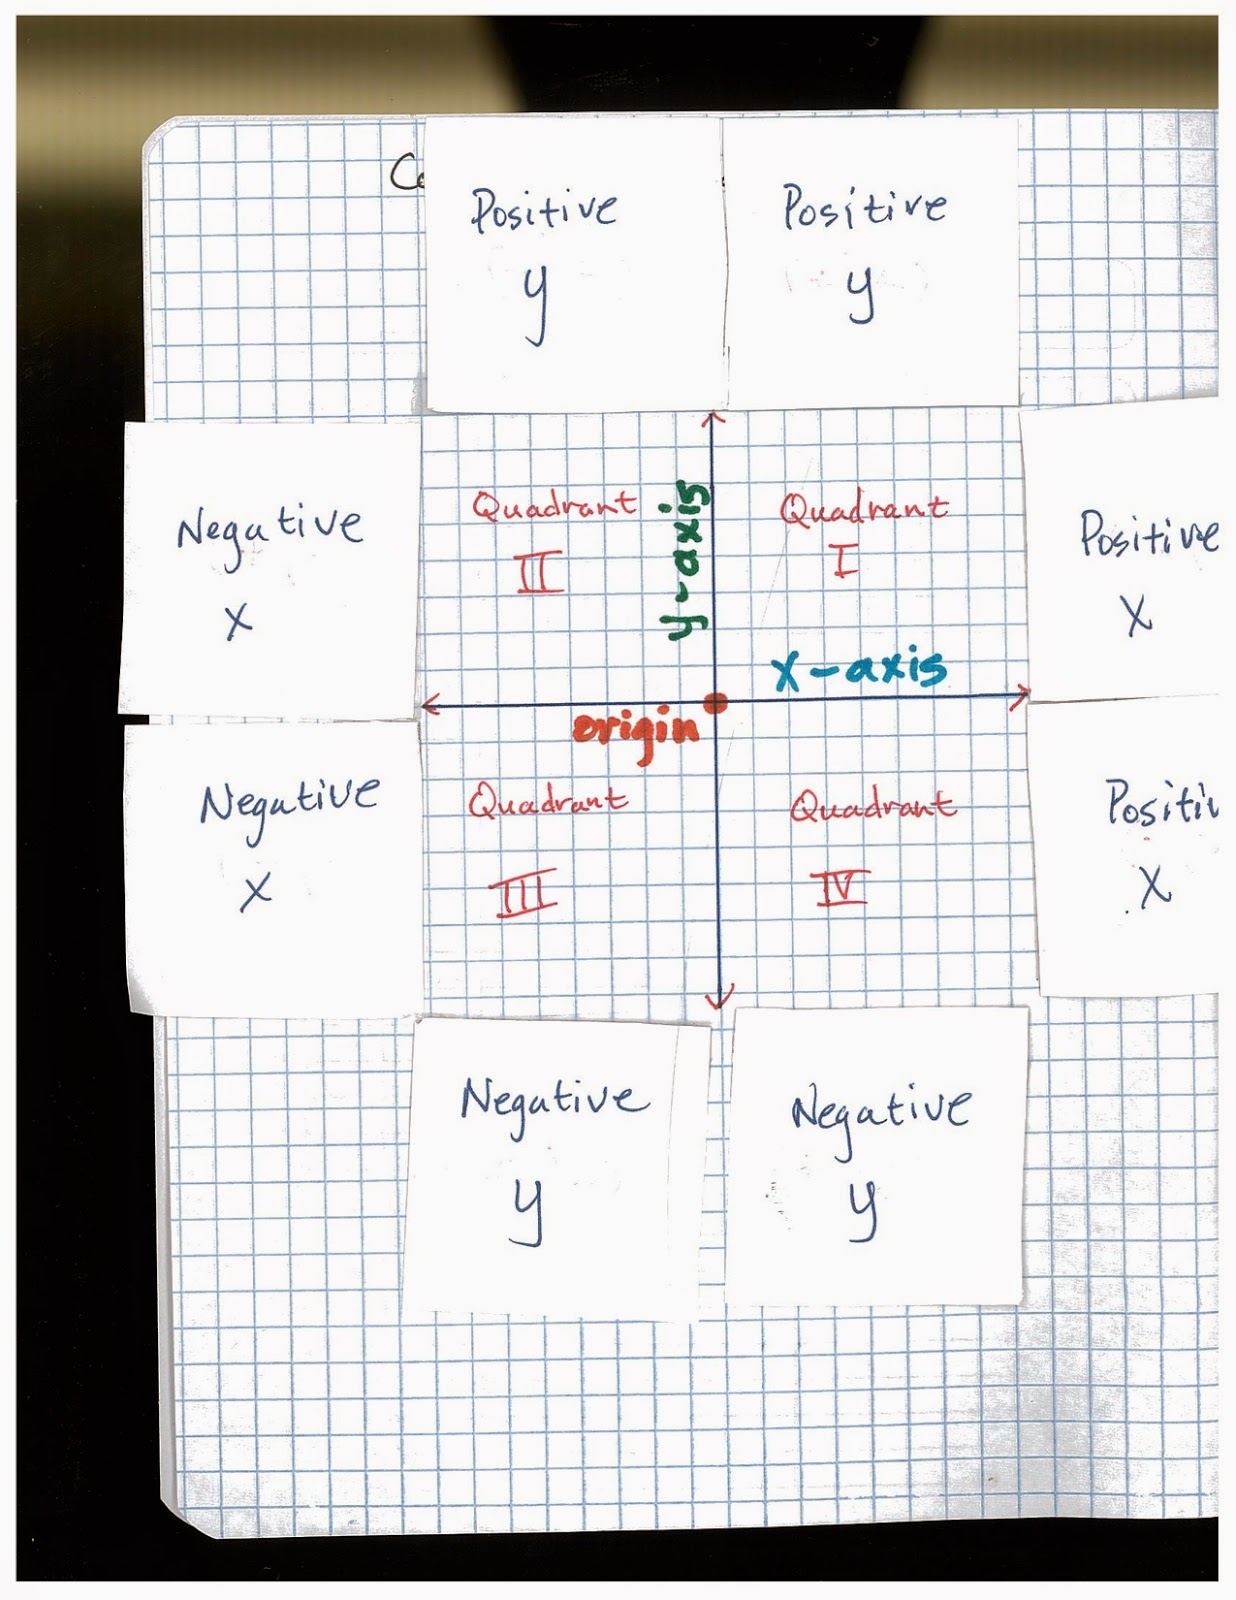 Positive
y
Positive
y
Negative
x
Quadrant
II
y-axis
Quadrant
I
Positive
x
x-axis
origin
Negative
x
Quadrant
III
Quadrant
IV
Positiv
x
Negative
y
Negative
y